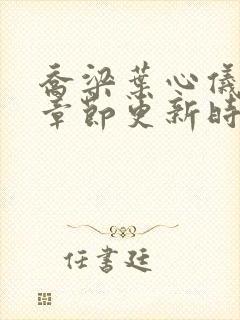 喬梁葉心儀
章節更新時
任書廷